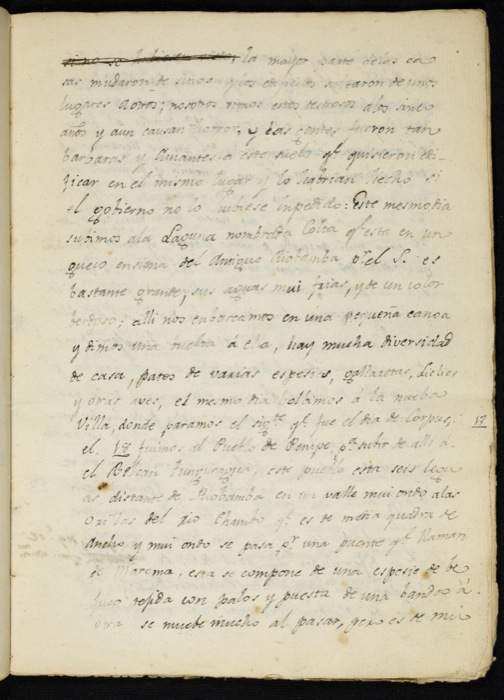 la mayor parte delas ca
sas mudaron de sitios y los se saron de unos
lugares a otros; nosotros vimos estos destrosos alos sinco
años y aun causan horror, y esas gentes fueron tan
barbaras y Amantes á este suelo q.e quisieron edi-
ficar en el mismo lugar y lo habrian hecho si
el gobierno no lo hubiese inpedido: Este mesmo dia
subimos ala Laguna nombrada Colta q.e esta en un
gueco ensima del Antiguo Riobamba p.r el S. es
bastante grande, sus aguas mui frias, y de un color
berdoso; alli nos enbarcamos en una pequeña canoa
y dimos una buelta á ella, hay mucha diversidad
de casa, patos de varias espesies, gallaretas,
y otras aves, el mesmo dia bolbimos a la nueba
Villa, donde paramos el sig.te q.e fue el dia de Corpus; 17
el. 18 fuimos al Pueblo de Penipe, p.a subir de alli á
el Bolcan Tunguragua, este pueblo esta seis legu
as distante de Riobamba en un valle mui ondo alas
orillas del rio Chambo q.e es de media quadra de
Ancho y mui ondo se pasa p.r una puente q.e llaman
de Maroma, esta se compone de una espesie de be
juco tejida con palos y puesta de una banda á
otra se muebe mucho al pasar, pero es de mui